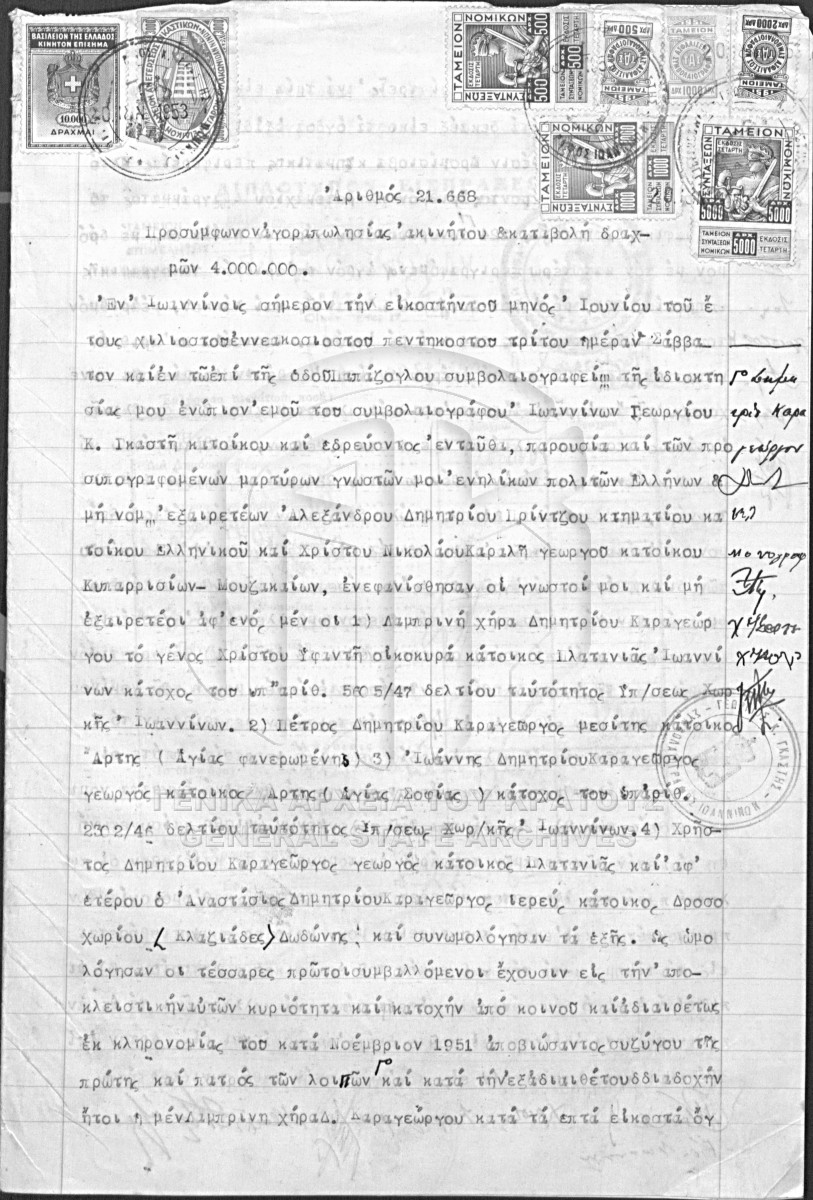 ΒΑΣΙΛΕΙΟΝ ΤΗΣ ΕΛΛΑΔΟΣ
ΚΙΝΗΤΟΝ ΕΠΙΣΗΜΑ
10.000
ΔΡΑΧΜΑΙ
ΤΑΜΕΙΟΝ ΝΟΜΙΚΩΝ
ΣΥΝΤΑΞΕΩΝ
500
ΔΡΧ 500
ΔΡΧ 2000
ΤΑΜΕΙΟΝ ΝΟΜΙΚΩΝ
ΣΥΝΤΑΞΕΩΝ
1000
ΤΑΜΕΙΟΝ ΝΟΜΙΚΩΝ
ΣΥΝΤΑΞΕΩΝ
ΕΚΔΟΣΙΣ ΤΕΤΑΡΤΗ
5000 5000
ΤΑΜΕΙΟΝ ΣΥΝΤΑΞΕΩΝ ΝΟΜΙΚΩΝ 5000 ΕΚΔΟΣΙΣ ΤΕΤΑΡΤΗ
Ἀριθμός 21.668
Προσύμφωνον ἀγοραπωλησίας ἀκινήτου &καταβολή δραχ-
μῶν 4.000.000.
Ἐν Ἰωαννίνοις σήμερον τήν εἰκοστήντοῦ μηνός Ἰουνίου τοῦ ἔ
τους χιλιοστοῦἐννεακοσιοστοῦ πεντηκοστοῦ τρίτου ἡμέραν Σάββα
τον καίἐν τῶἐπί τῆς ὁδοῦΠαπάζογλου συμβολαιογραφείω τῆς ἰδιοκτη
σίας μου ἐνώπιον ἐμοῦ τοῦ συμβολαιογράφου Ἰωαννίνων Γεωργίου
Κ. Γκαστῆ κατοίκου καί ἑδρεύοντος ἐνταῦθα, παρουσία καί τῶν προ
συπογραφομένων μαρτύρων γνωστῶν μοι ἐνηλίκων πολιτῶν Ἑλλήνων &
μή νόμω ἐξαιρετέων Ἀλεξάνδρου Δημητρίου Πρίντζου κτηματίου κα
τοίκου Ἑλληνικοῦ καί Χρίστου ΝικολάουΚαραλῆ γεωργοῦ κατοίκου
Κυπαρρισίων- Μουζακαίων, ἐνεφανίσθησαν οἱ γνωστοί μοι καί μή
ἐξαιρετέοι ἀφ'ἑνός μέν οἱ 1) Λαμπρινή χήρα Δημητρίου Καραγεώρ
γου τό γένος Χρίστου Ὑφαντῆ οἰκοκυρά κάτοικος Πλατανιᾶς Ἰωαννί
νων κάτοχος τοῦ ὑπ'ἀρίθ. 5605/47 δελτίου ταὐτότητος Ὑπ/σεως Χωρ
κῆς Ἰωαννίνων. 2) Πέτρος Δημητρίου Καραγεῶργος μεσίτης κάτοικος
Ἄρτης ( Ἁγίας φανερωμένης) 3) Ἰωάννης ΔημητρίουΚαραγεῶργος
γεωργός κάτοικος Ἄρτης ( Ἁγίας Σοφίας ) κάτοχος τοῦ ὑπάρίθ.
2302/46 δελτίου ταὐτότητος Ὑπ/σεως Χωρ/κῆς Ἰωαννίνων.4) Χρῆσ-
τος Δημητρίου Καραγεῶργος γεωργός κάτοικος Πλατανιᾶς καί ἀφ'
ἑτέρου ὁ Ἀναστάσιος ΔημητρίουΚαραγεῶργος ἱερεύς κάτοικος Δροσο
χωρίου ( Κλαζιάδες) Δωδώνης καί συνωμολόγησαν τά ἑξῆς. Ὡς ὡμο
λόγησαν οἱ τέσσαρες πρῶτοισυμβαλλόμενοι ἔχουσιν εἰς τήν ἀπο-
κλειστικήναὐτῶν κυριότητα καί κατοχήν ἀπό κοινοῦ καίἀδιαιρέτως
ἐκ κληρονομίας τοῦ κατά Νοέμβριον 1951 ἀποβιώσαντος συζύγου τῆς
πρώτης καί πατρός τῶν λοιπῶν καί κατά τήνἐξἀδιαιθέτουδδιαδοχήν
ἤτοι ἡ μένΛαμπρινή χήραΔ. Καραγεώργου κατά τά ἑπτά εἰκοστά ὄγ
ΓΕΝΙΚΑ ΑΡΧΕΙΑ ΤΟΥ ΚΡΑΤΟΥΣ
GENERAL STATE ARCHIVES